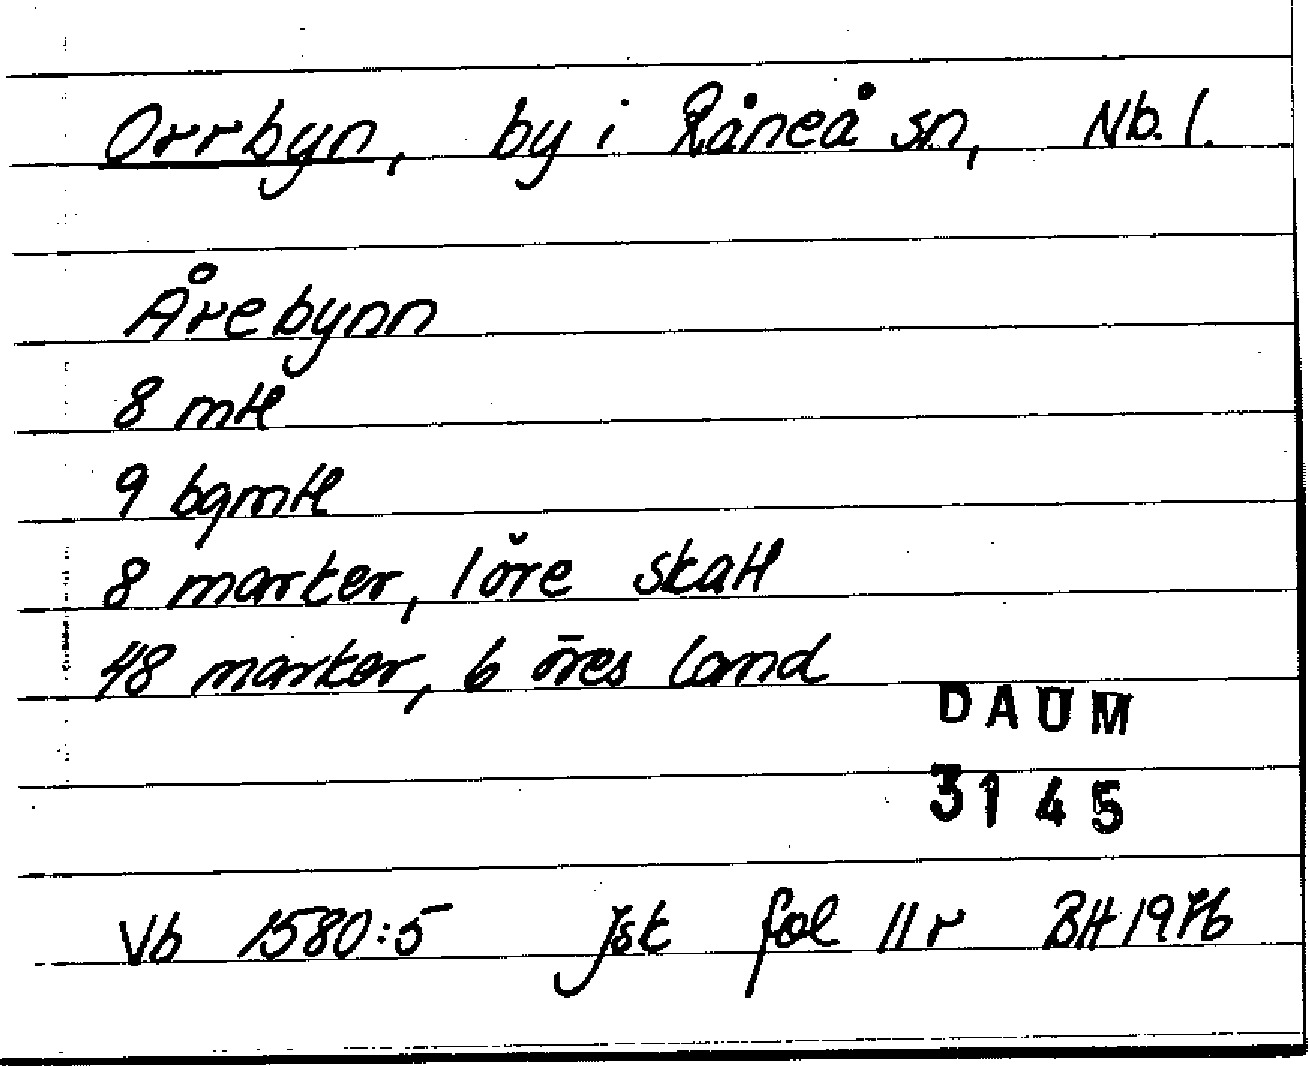 Orrbyn, by i Råneå sn, Nb. l.
Årebynn
8 mtl
9 bgmtl
8 marker, 1 öre skatt
48 marker, 6 öres land
DAUM
3145
Vb 1580:5 jsk fol 11 r BH 1976